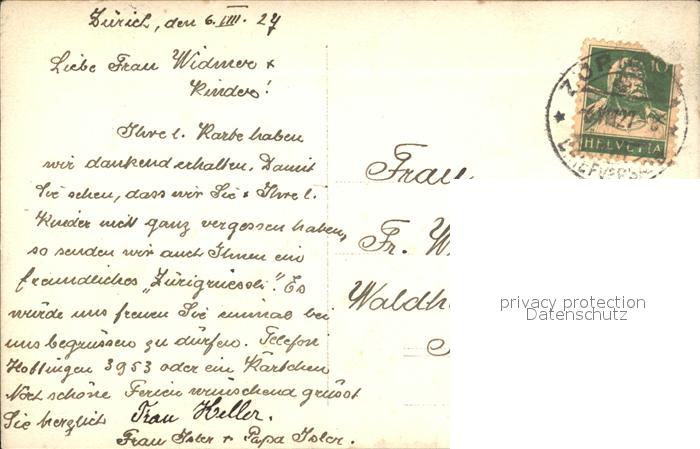 Zürich, den 6. VIII. 27
Liebe Frau Widmer &
Kinder!
Ihre l. Karte haben
wir dankend erhalten. Damit
Sie sehen, dass wir Sie & Ihre l.
Kinder nicht ganz vergessen haben,
so senden wir auch Ihnen ein
freundliches „Zürigruessli". Es
würde uns freuen Sie einmal bei
uns begrüssen zu dürfen. Telefon
Hottingen 3953 oder ein Kärtchen
Noch schöne Ferien wünschend grüsst
Sie herzlich Frau Heller.
Frau Isler & Papa Isler.
Frau
Fr. W
Waldh
10
HELVETIA
BRIEFVERS
privacy protection
Datenschutz